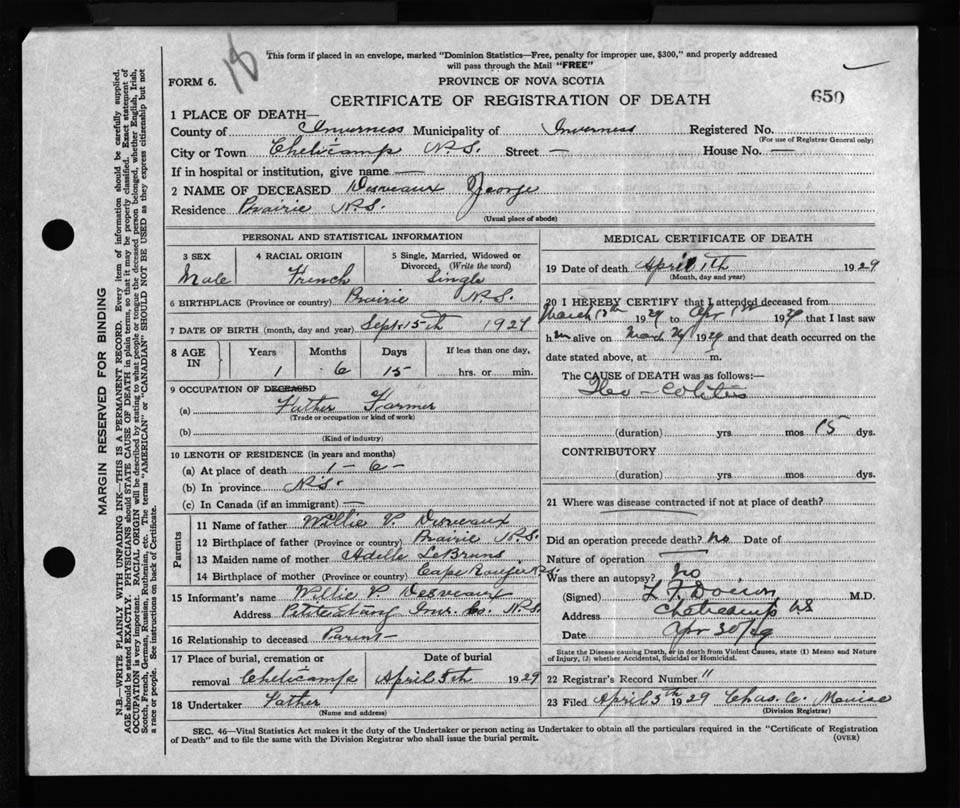 18
This form if placed in an envelope, marked "Dominion Statistics—Free, penalty for improper use, $300," and properly addressed
will pass through the Mail "FREE"
FORM 6.
PROVINCE OF NOVA SCOTIA
CERTIFICATE OF REGISTRATION OF DEATH
650
1 PLACE OF DEATH—
County of Inverness Municipality of Inverness Registered No.
(For use of Registrar General only)
City or Town Cheticamp N.S. Street — House No. —
If in hospital or institution, give name —
2 NAME OF DECEASED Desveaux George
Residence Prairie N.S.
(Usual place of abode)
PERSONAL AND STATISTICAL INFORMATION
3 SEX 4 RACIAL ORIGIN 5 Single, Married, Widowed or
Divorced, (Write the word)
Male French Single
6 BIRTHPLACE (Province or country) Prairie N.S.
7 DATE OF BIRTH (month, day and year) Sept 15th 1927
8 AGE IN Years Months Days If less than one day,
1 6 15 hrs. or min.
9 OCCUPATION OF DECEASED
(a) Father Farmer
(Trade or occupation or kind of work)
(b)
(Kind of industry)
10 LENGTH OF RESIDENCE (in years and months)
(a) At place of death 1-6-
(b) In province N.S.
(c) In Canada (if an immigrant) —
Parents
11 Name of father Willie P. Desveaux
12 Birthplace of father (Province or country) Prairie N.S.
13 Maiden name of mother Adelle LeBrun
14 Birthplace of mother (Province or country) Cape Rouge N.S.
15 Informant's name Willie P Desveaux
Address Petit Etang Inv. Co. N.S.
16 Relationship to deceased Parent
17 Place of burial, cremation or Date of burial
removal Cheticamp April 5th 1929
18 Undertaker Father
(Name and address)
MEDICAL CERTIFICATE OF DEATH
19 Date of death April 1th 1929
(Month, day and year)
20 I HEREBY CERTIFY that I attended deceased from
March 1929 to Apr 1st 1929 that I last saw
him alive on 1929 and that death occurred on the
date stated above, at m.
The CAUSE of DEATH was as follows:—
Ileo-colitis
(duration) yrs mos 15 dys.
CONTRIBUTORY
(duration) yrs mos dys.
21 Where was disease contracted if not at place of death?
Did an operation precede death? No Date of
Nature of operation
Was there an autopsy? No
(Signed) L. F. Doiron M.D.
Address Cheticamp NS
Date Apr 30/29
State the Disease causing Death, or in death from Violent Causes, state (1) Means and Nature
of Injury, (2) whether Accidental, Suicidal or Homicidal.
22 Registrar's Record Number 11
23 Filed April 5th 1929 Chas. C.
(Division Registrar)
SEC. 46—Vital Statistics Act makes it the duty of the Undertaker or person acting as Undertaker to obtain all the particulars required in the "Certificate of Registration
of Death" and to file the same with the Division Registrar who shall issue the burial permit.
(OVER)
MARGIN RESERVED FOR BINDING
N.B.—WRITE PLAINLY WITH UNFADING INK—THIS IS A PERMANENT RECORD. Every item of information should be carefully supplied.
AGE should be stated EXACTLY. PHYSICIANS should STATE CAUSE OF DEATH in plain terms, so that it may be properly classified. Exact statement of
OCCUPATION is very important. RACIAL ORIGIN will be described by stating to what people or tongue the deceased person belonged, whether English, Irish,
Scotch, French, German, Russian, Ruthenian, etc. The terms "AMERICAN" or "CANADIAN" SHOULD NOT BE USED as they express citizenship but not
a race or people. See instructions on back of Certificate.